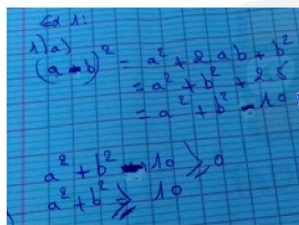 Ex 1:
1) a)
(a - b)² = a² + 2 ab + b²
= a² + b² + 2.
= a² + b² - 10
a² + b² - 10 ⩾ 0
a² + b² ⩾ 10